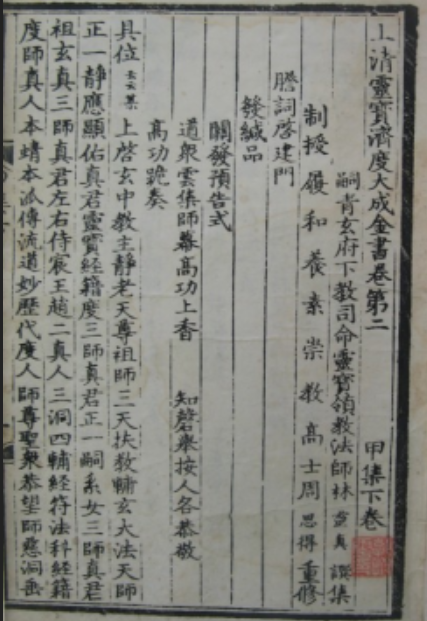 上清靈寶濟度大成金書卷第二　甲集下卷
嗣青玄府下教司命靈寶領教法師林靈真譔集
制授履和養素崇教高士周思得重修
謄詞啓建門
發緘品
關發預告式
道衆雲集師幕高功上香　知磬舉按人各恭敬
高功跪奏
具位云云某上啓玄中教主靜老天尊祖師三天扶教輔玄大法天師
正一靜應顯佑真君靈寶經籍度三師真君正一嗣系女三師真君
祖玄真三師真君左右侍宸王趙二真人三洞四輔経符法科経籍
度師真人本靖本派傳流道妙歷代度人師尊聖衆恭望師慈洞垂